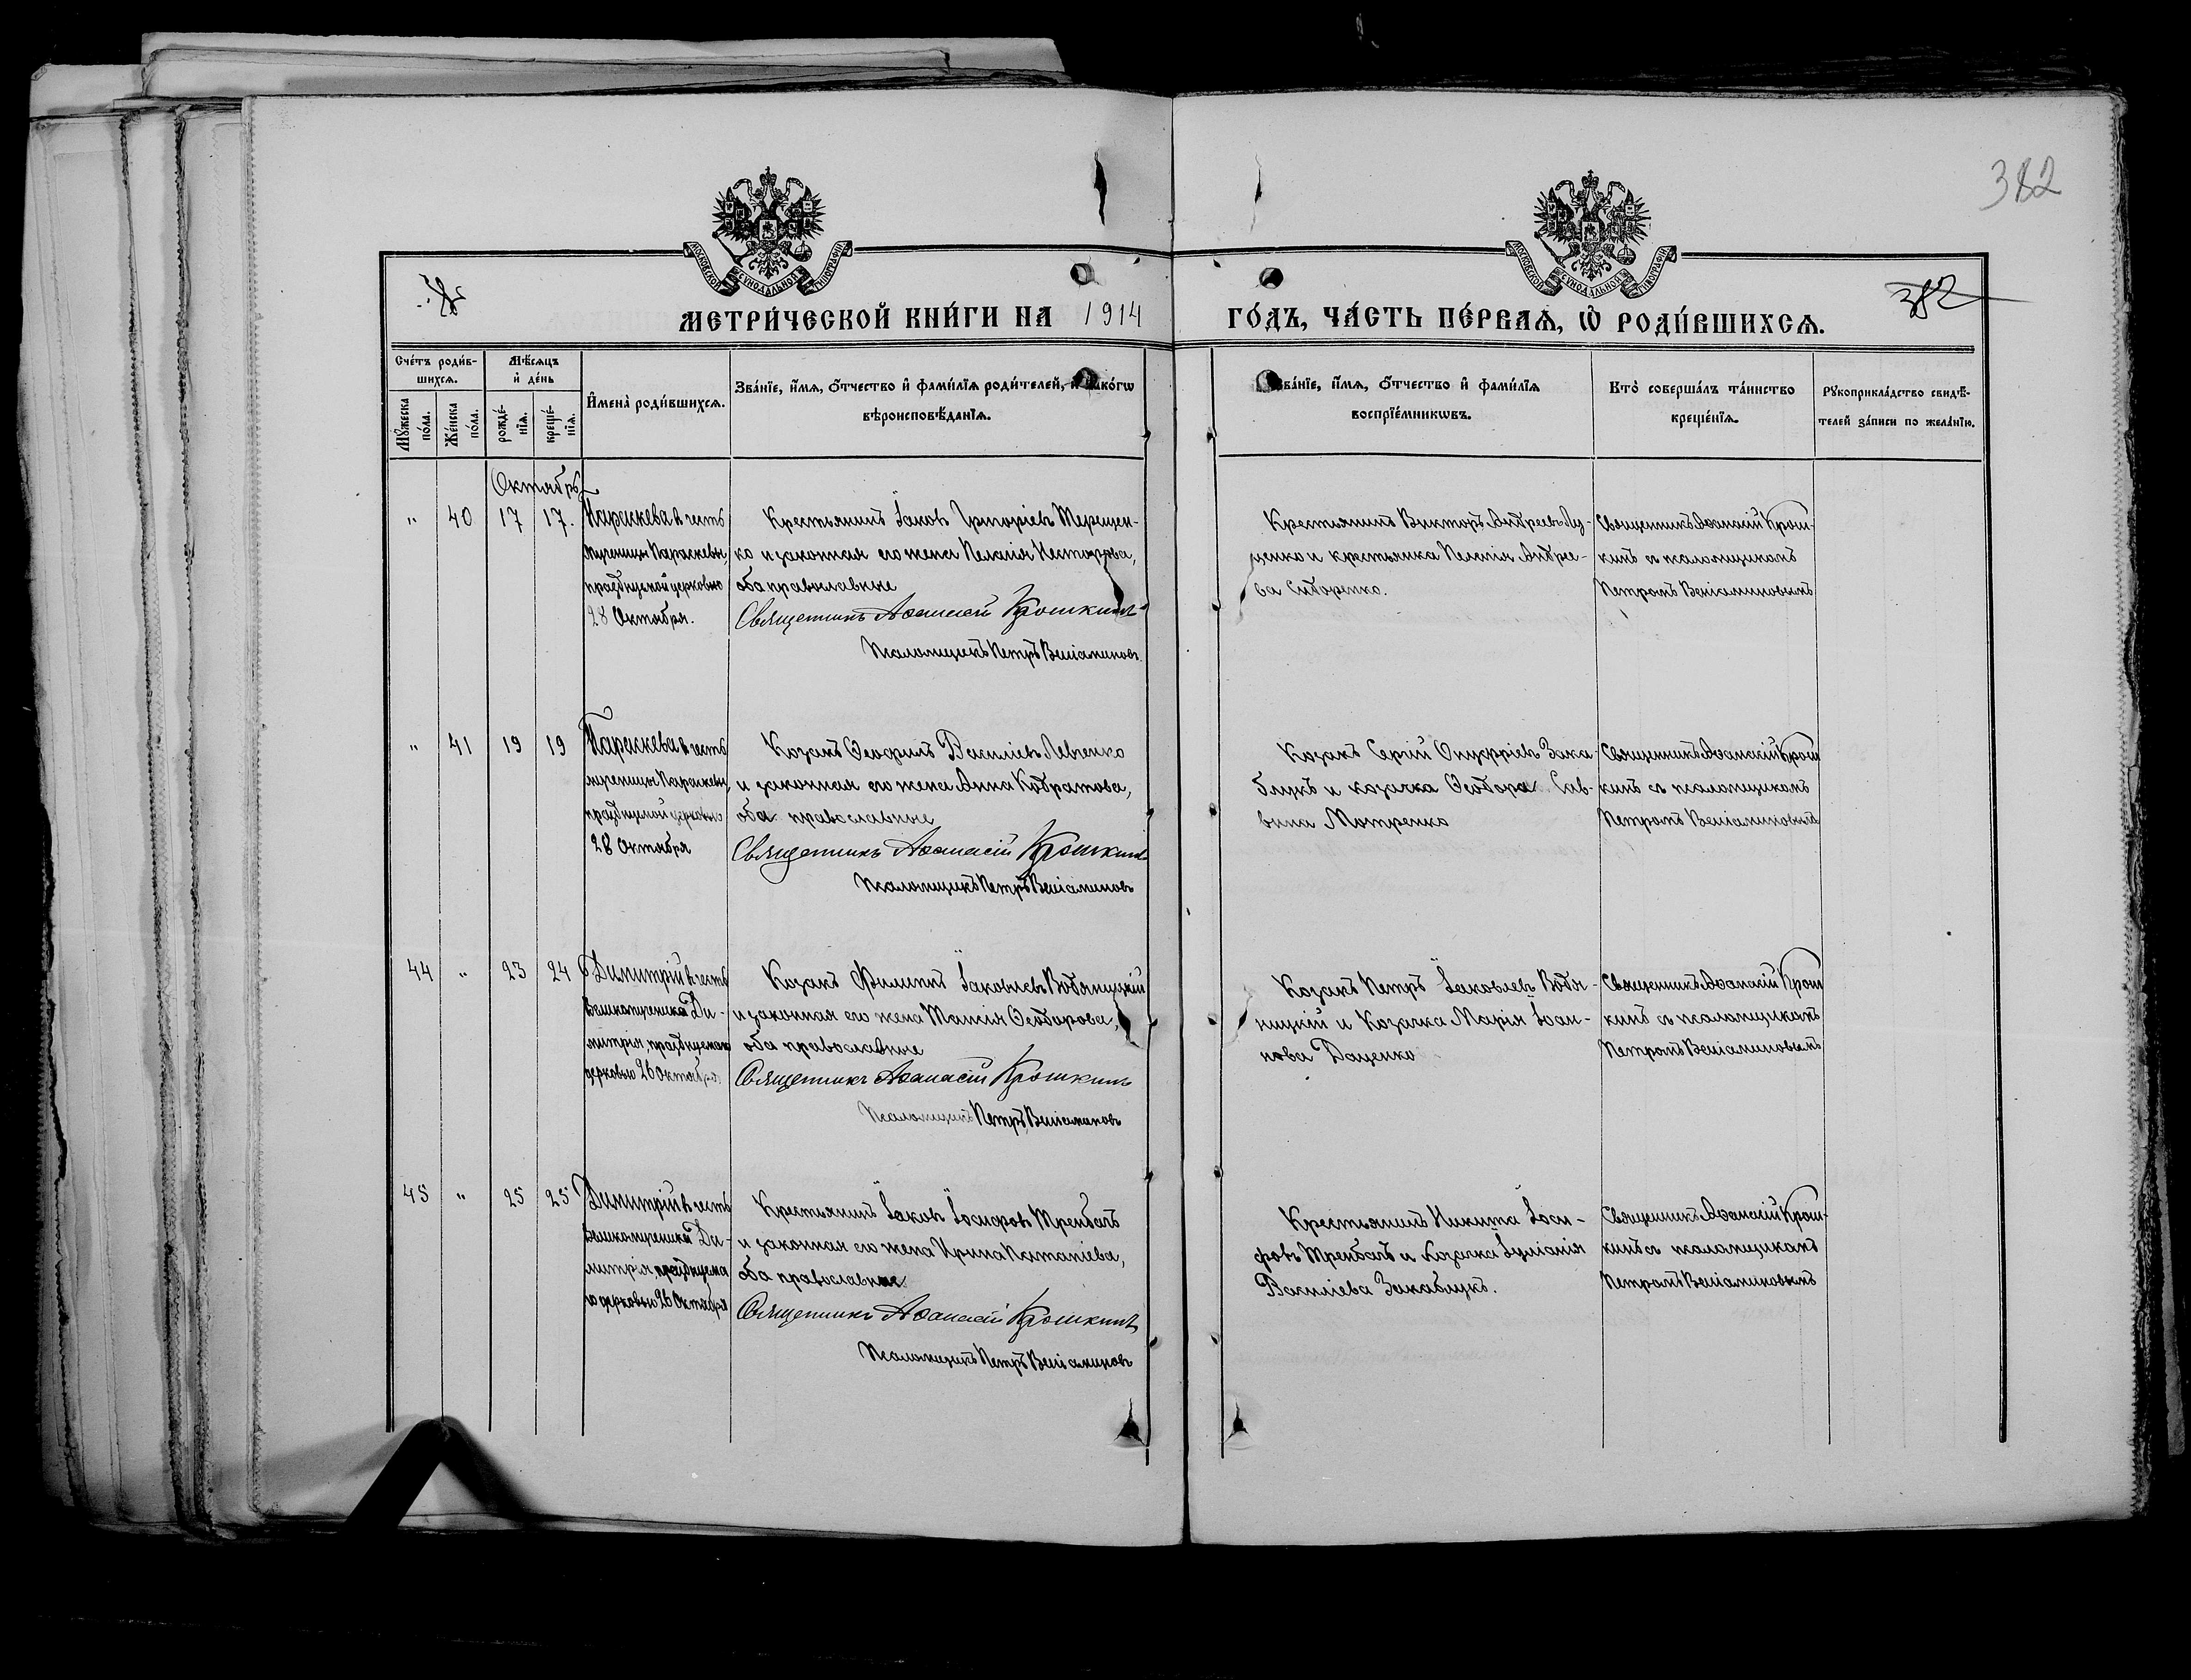 382
МОСКОВСКОЙ СѴНОДАЛЬНОЙ ТИПОГРАФІИ
МОСКОВСКОЙ СѴНОДАЛЬНОЙ ТИПОГРАФІИ
382
МЕТРИ́ЧЕСКОЙ КНИ́ГИ НА 1914 ГО́ДЪ, ЧА́СТЬ ПЕ́РВАѦ, Ѡ҆ РОДИ́ВШИХСѦ.
Сче́тъ роди́в-
шихсѧ.
Мꙋ́жеска по́ла.
Же́нска по́ла.
Мѣ́сѧцъ
и҆ де́нь
рожде́-
нїѧ.
креще́-
нїѧ.
И҆мена̀ роди́вшихсѧ.
Зва́нїе, и҆́мѧ, ѻ҆́тчество и҆ фами́лїѧ роди́телей, и҆ како́гѡ
вѣроисповѣ́данїѧ.
Зва́нїе, и҆́мѧ, ѻ҆́тчество и҆ фами́лїѧ
воспрїе́мникѡвъ.
Кто̀ соверша́лъ та́инство
креще́нїѧ.
Рꙋкоприкла́дство свидѣ́-
телей за́писи по жела́нїю.
Октябрь
" 40 17 17.
Параскева въ честь
мученицы Параскевы,
празднуемой церковью
28 Октября.
Крестьянинъ Іаковъ Григоріевъ Терещен-
ко и законная его жена Пелагія Несторова,
оба православные
Священникъ Аѳанасій Крошкинъ
Псаломщикъ Петръ Веніаминовъ
Крестьянинъ Викторъ Андреевъ Лу-
ценко и крестьянка Пелагія Андрее-
ва Сидоренко.
Священникъ Аѳанасій Крош-
кинъ съ псаломщикомъ
Петромъ Веніаминовымъ
" 41 19 19
Параскева въ честь
мученицы Параскевы,
празднуемой церковью
28 Октября
Козакъ Ѳеофилъ Василіевъ Левченко
и законная его жена Анна Кодратова,
оба православные
Священникъ Аѳанасій Крошкинъ
Псаломщикъ Петръ Веніаминовъ
Козакъ Сергій Онуфріевъ Зака-
блукъ и козачка Ѳеодора Сав-
вина Мотренко
Священникъ Аѳанасій Крош
кинъ съ псаломщикомъ
Петромъ Веніаминовымъ
44 " 23 24
Димитрій въ честь
великомученика Ди-
митрія, празднуемаго
церковью 26 Октября.
Козакъ Филиппъ Іаковлевъ Водяницкій
и законная его жена Таисія Ѳеодорова,
оба православные
Священникъ Аѳанасій Крошкинъ
Псаломщикъ Петръ Веніаминовъ
Козакъ Петръ Іаковлевъ Водя-
ницкій и Козачка Марія Іоан-
нова Даценко
Священникъ Аѳанасій Крош
кинъ съ псаломщикомъ
Петромъ Веніаминовымъ
45 " 25 25
Димитрій въ честь
великомученика Ди-
митрія, празднуема
го церковью 26 Октября
Крестьянинъ Іаковъ Іосифовъ Трембачъ
и законная его жена Ирина Потапіева,
оба православные
Священникъ Аѳанасій Крошкинъ
Псаломщикъ Петръ Веніаминовъ
Крестьянинъ Никита Іоси-
фовъ Трембачъ и Козачка Іуліанія
Василіева Закаблукъ.
Священникъ Аѳанасій Крош-
кинъ съ псаломщикомъ
Петромъ Веніаминовымъ